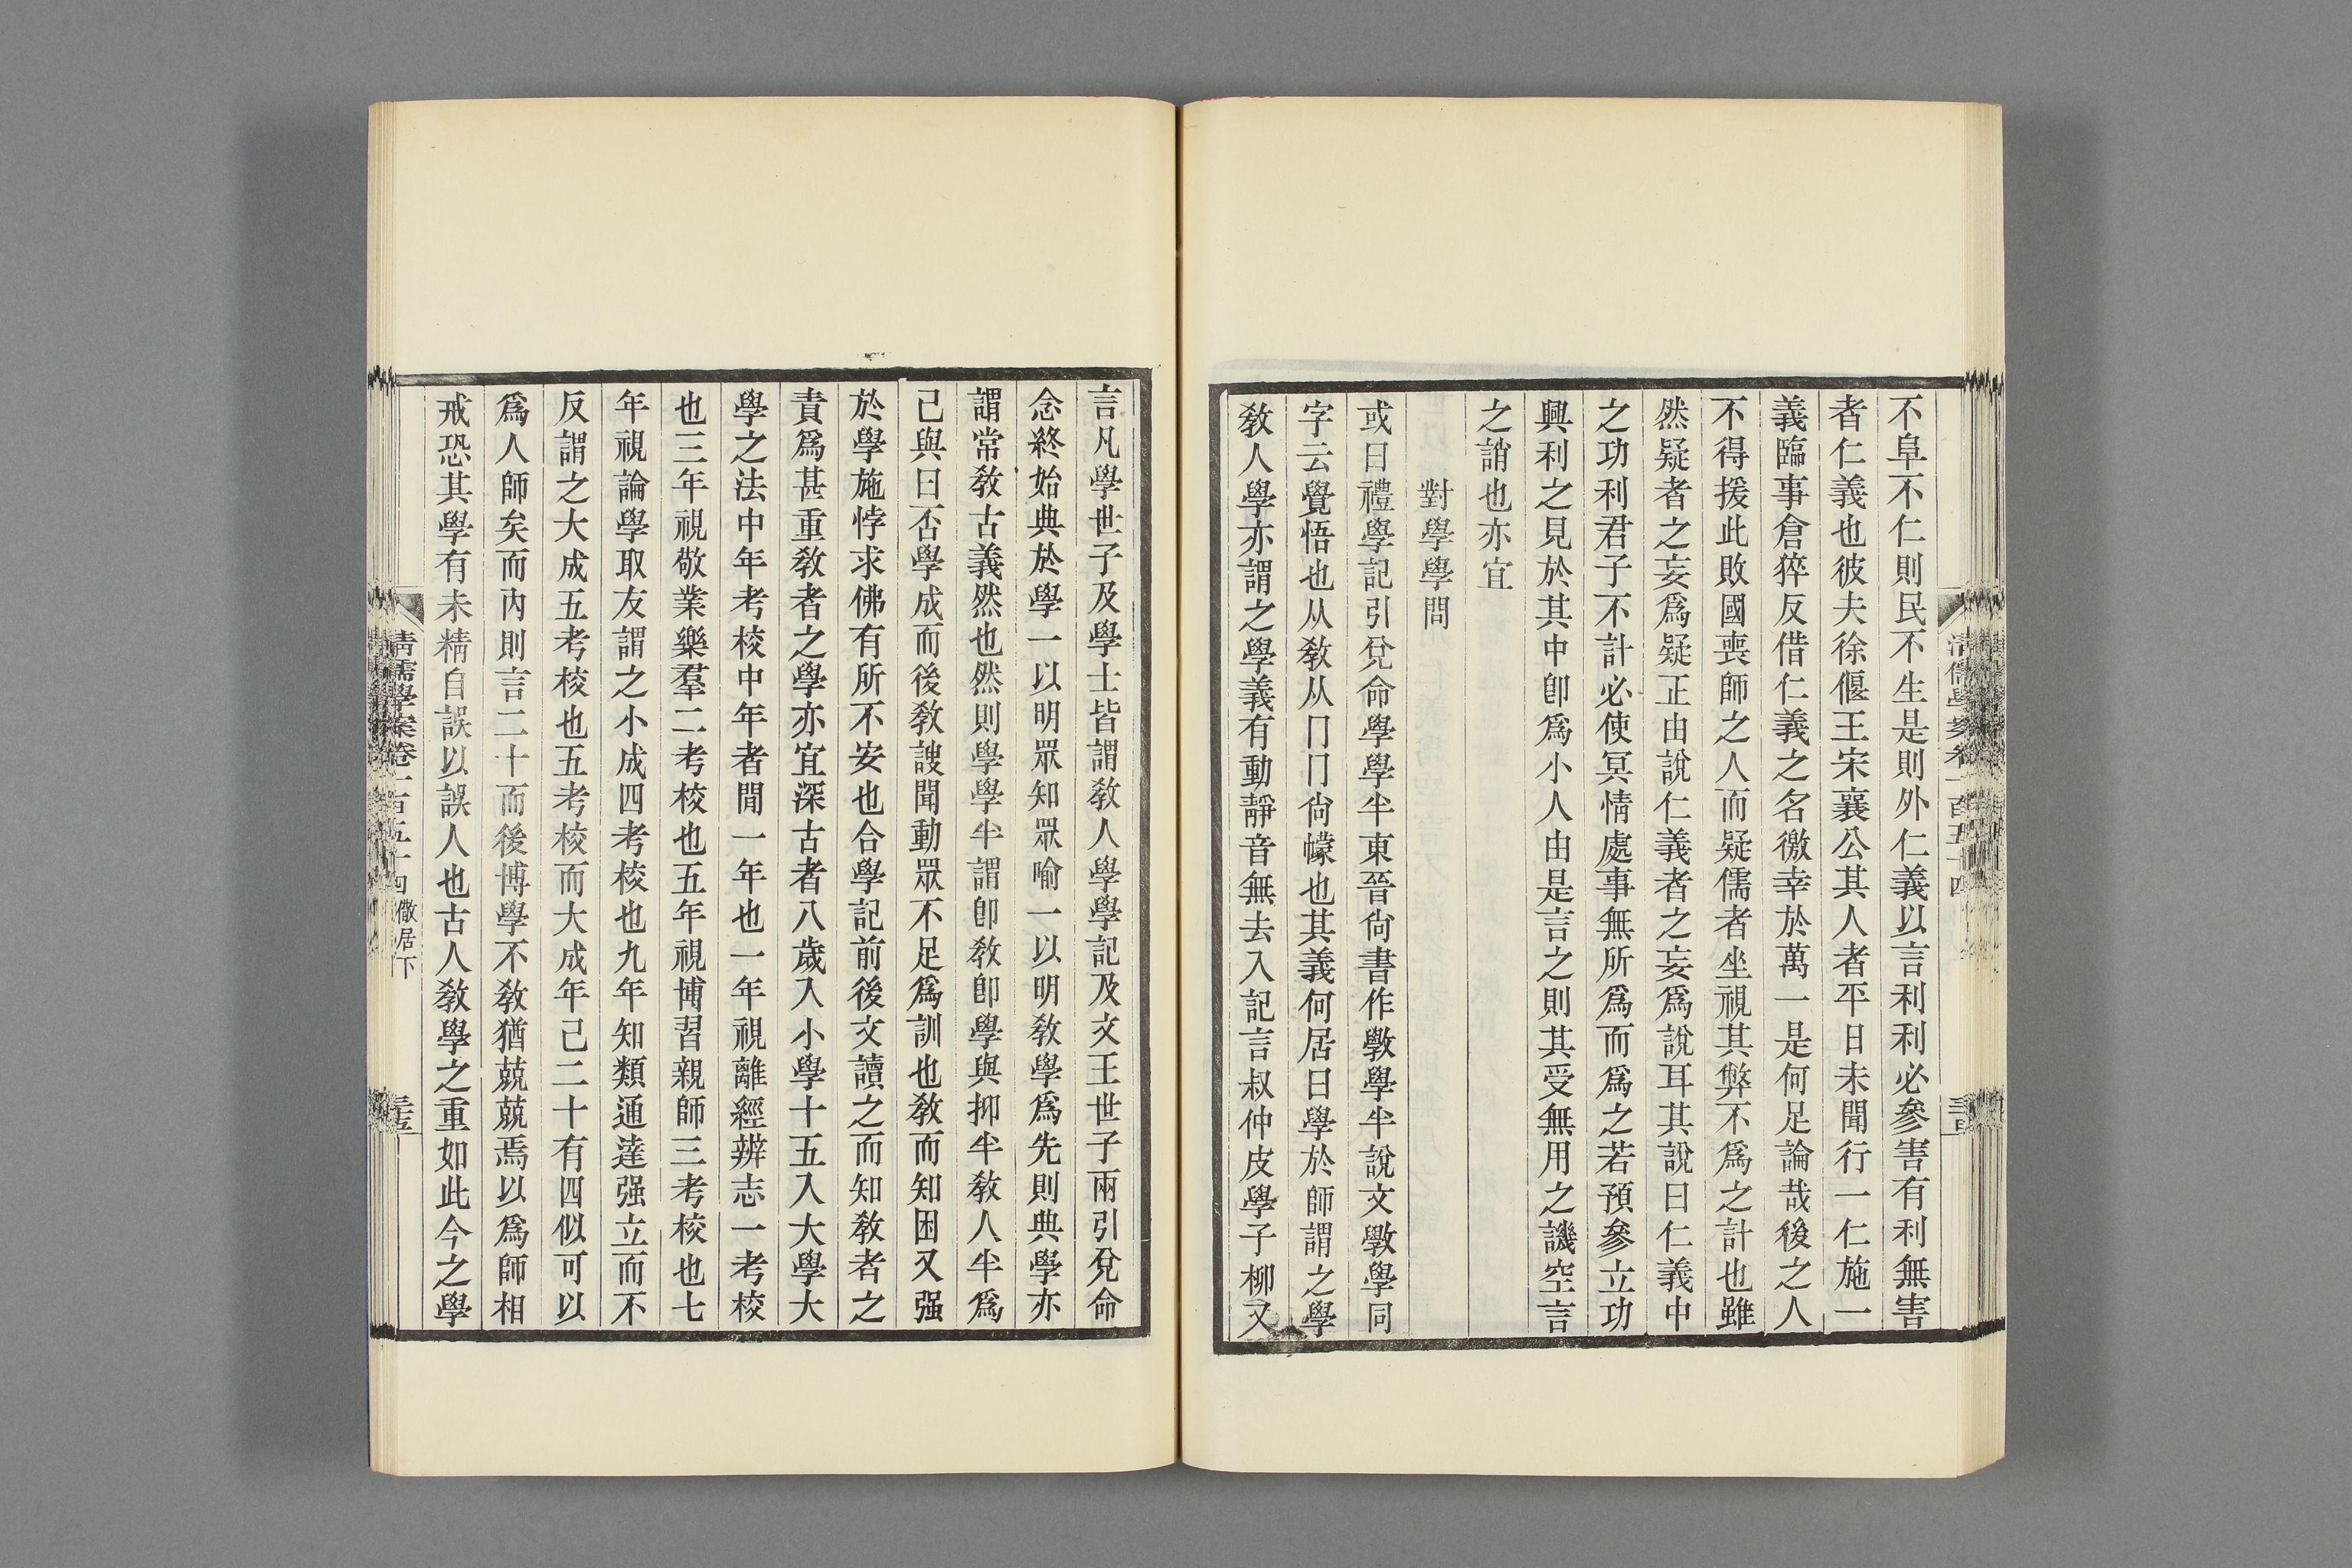 不阜不仁則民不生是則外仁義以言利利必參害有利無害
者仁義也彼夫徐偃王宋襄公其人者平日未聞行一仁施一
義臨事倉猝反借仁義之名徼幸於萬一是何足論哉後之人
不得援此敗國喪師之人而疑儒者坐視其弊不爲之計也雖
然疑者之妄爲疑正由說仁義者之妄爲說耳其說曰仁義中
之功利君子不計必使冥情處事無所爲而爲之若預參立功
興利之見於其中卽爲小人由是言之則其受無用之譏空言
之誚也亦宜
對學學問
或曰禮學記引兌命學學半東晉尙書作斅學半說文斅學同
字云覺悟也从敎从冂冂尙幪也其義何居曰學於師謂之學
敎人學亦謂之學義有動靜音無去入記言叔仲皮學子柳又
言凡學世子及學士皆謂敎人學學記及文王世子兩引兌命
念終始典於學一以明眾知眾喻一以明敎學爲先則典學亦
謂常敎古義然也然則學學半謂卽敎卽學與抑半敎人半爲
己與曰否學成而後敎謏聞動眾不足爲訓也敎而知困又强
於學施悖求佛有所不安也合學記前後文讀之而知敎者之
責爲甚重敎者之學亦宜深古者八歲入小學十五入大學大
學之法中年考校中年者閒一年也一年視離經辨志一考校
也三年視敬業樂羣二考校也五年視博習親師三考校也七
年視論學取友謂之小成四考校也九年知類通達强立而不
反謂之大成五考校也五考校而大成年已二十有四似可以
爲人師矣而內則言二十而後博學不敎猶兢兢焉以爲師相
戒恐其學有未精自誤以誤人也古人敎學之重如此今之學
清儒學案卷一百五十四 儆居下
三十五